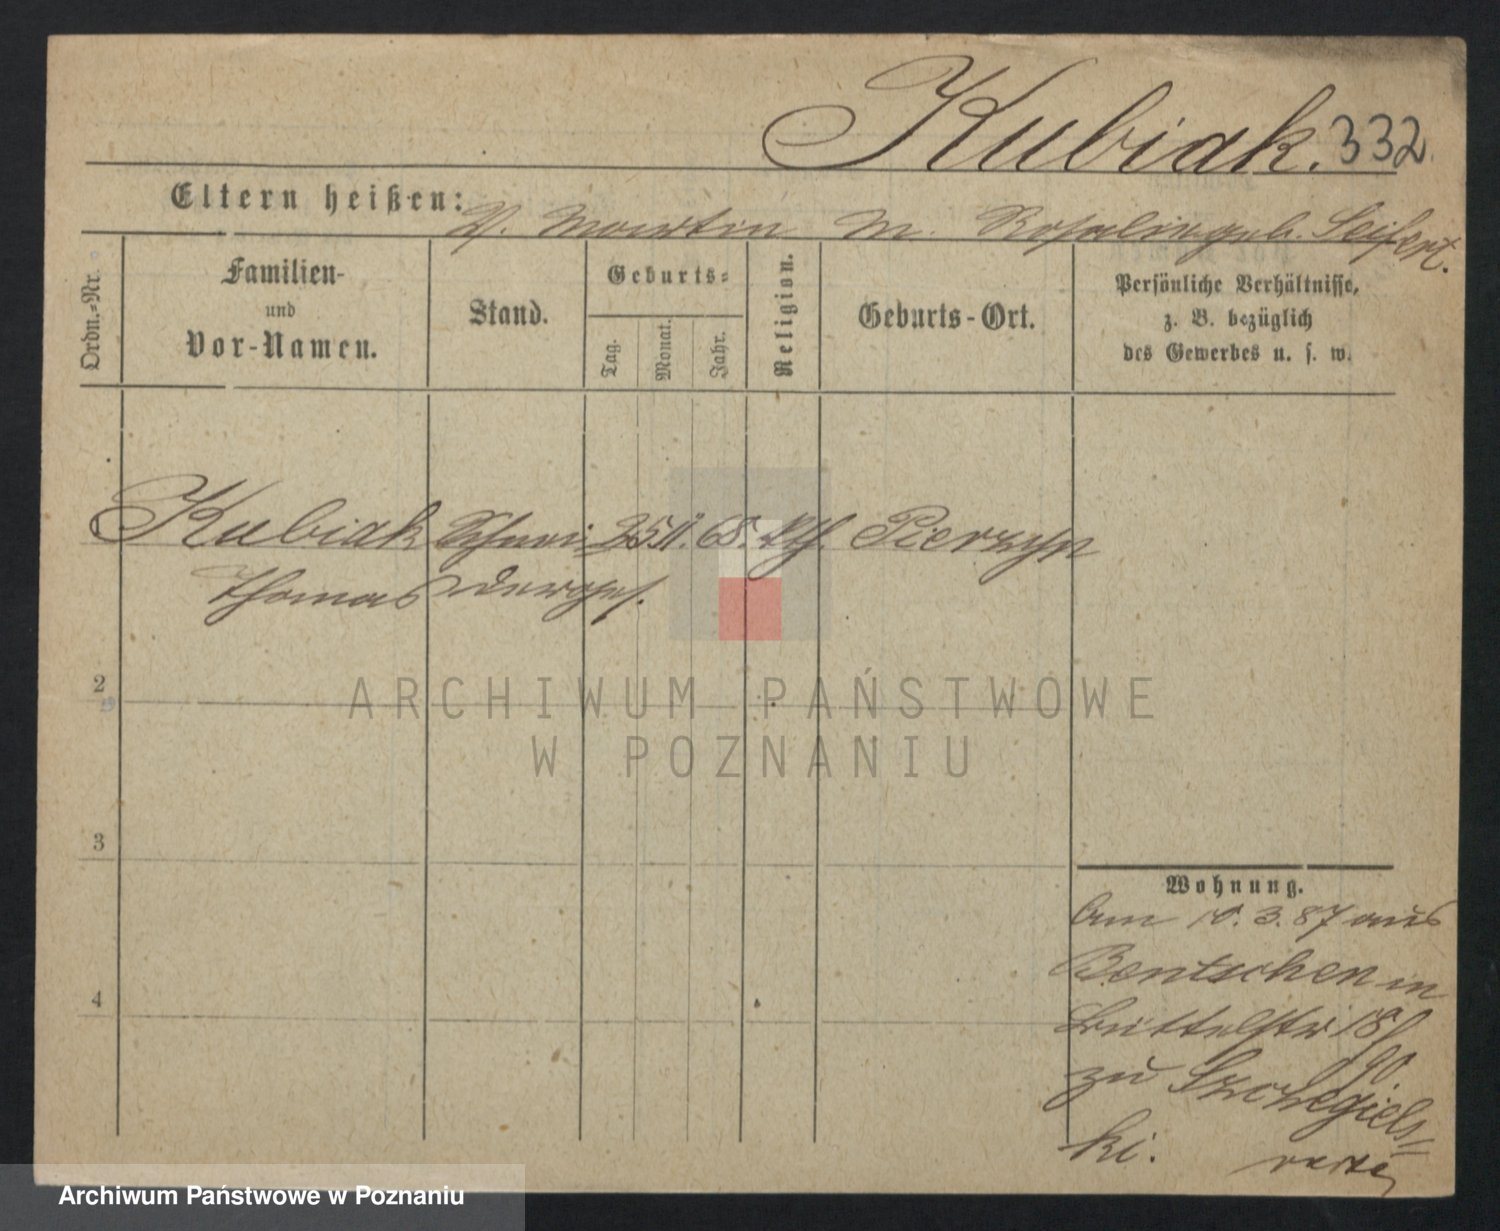 Kubiak. 332.
Eltern heißen:
V. Martin M. Rosalie geb. Seifert.
Ordn.-Nr.
Familien-
und
Vor-Namen.
Stand.
Geburts-
Tag.
Monat.
Jahr.
Religion.
Geburts-Ort.
Persönliche Verhältnisse,
z. B. bezüglich
des Gewerbes u. s. w.
Kubiak Schnei- 25. 11. 68. kth. Pierzyn
Thomas derges.
2
3
4
Wohnung.
Am 10. 3. 87 aus
Bentschen in
Büttelstr 18/
90
zu Szczegiels-
ki.
ARCHIWUM PAŃSTWOWE
W POZNANIU
Archiwum Państwowe w Poznaniu